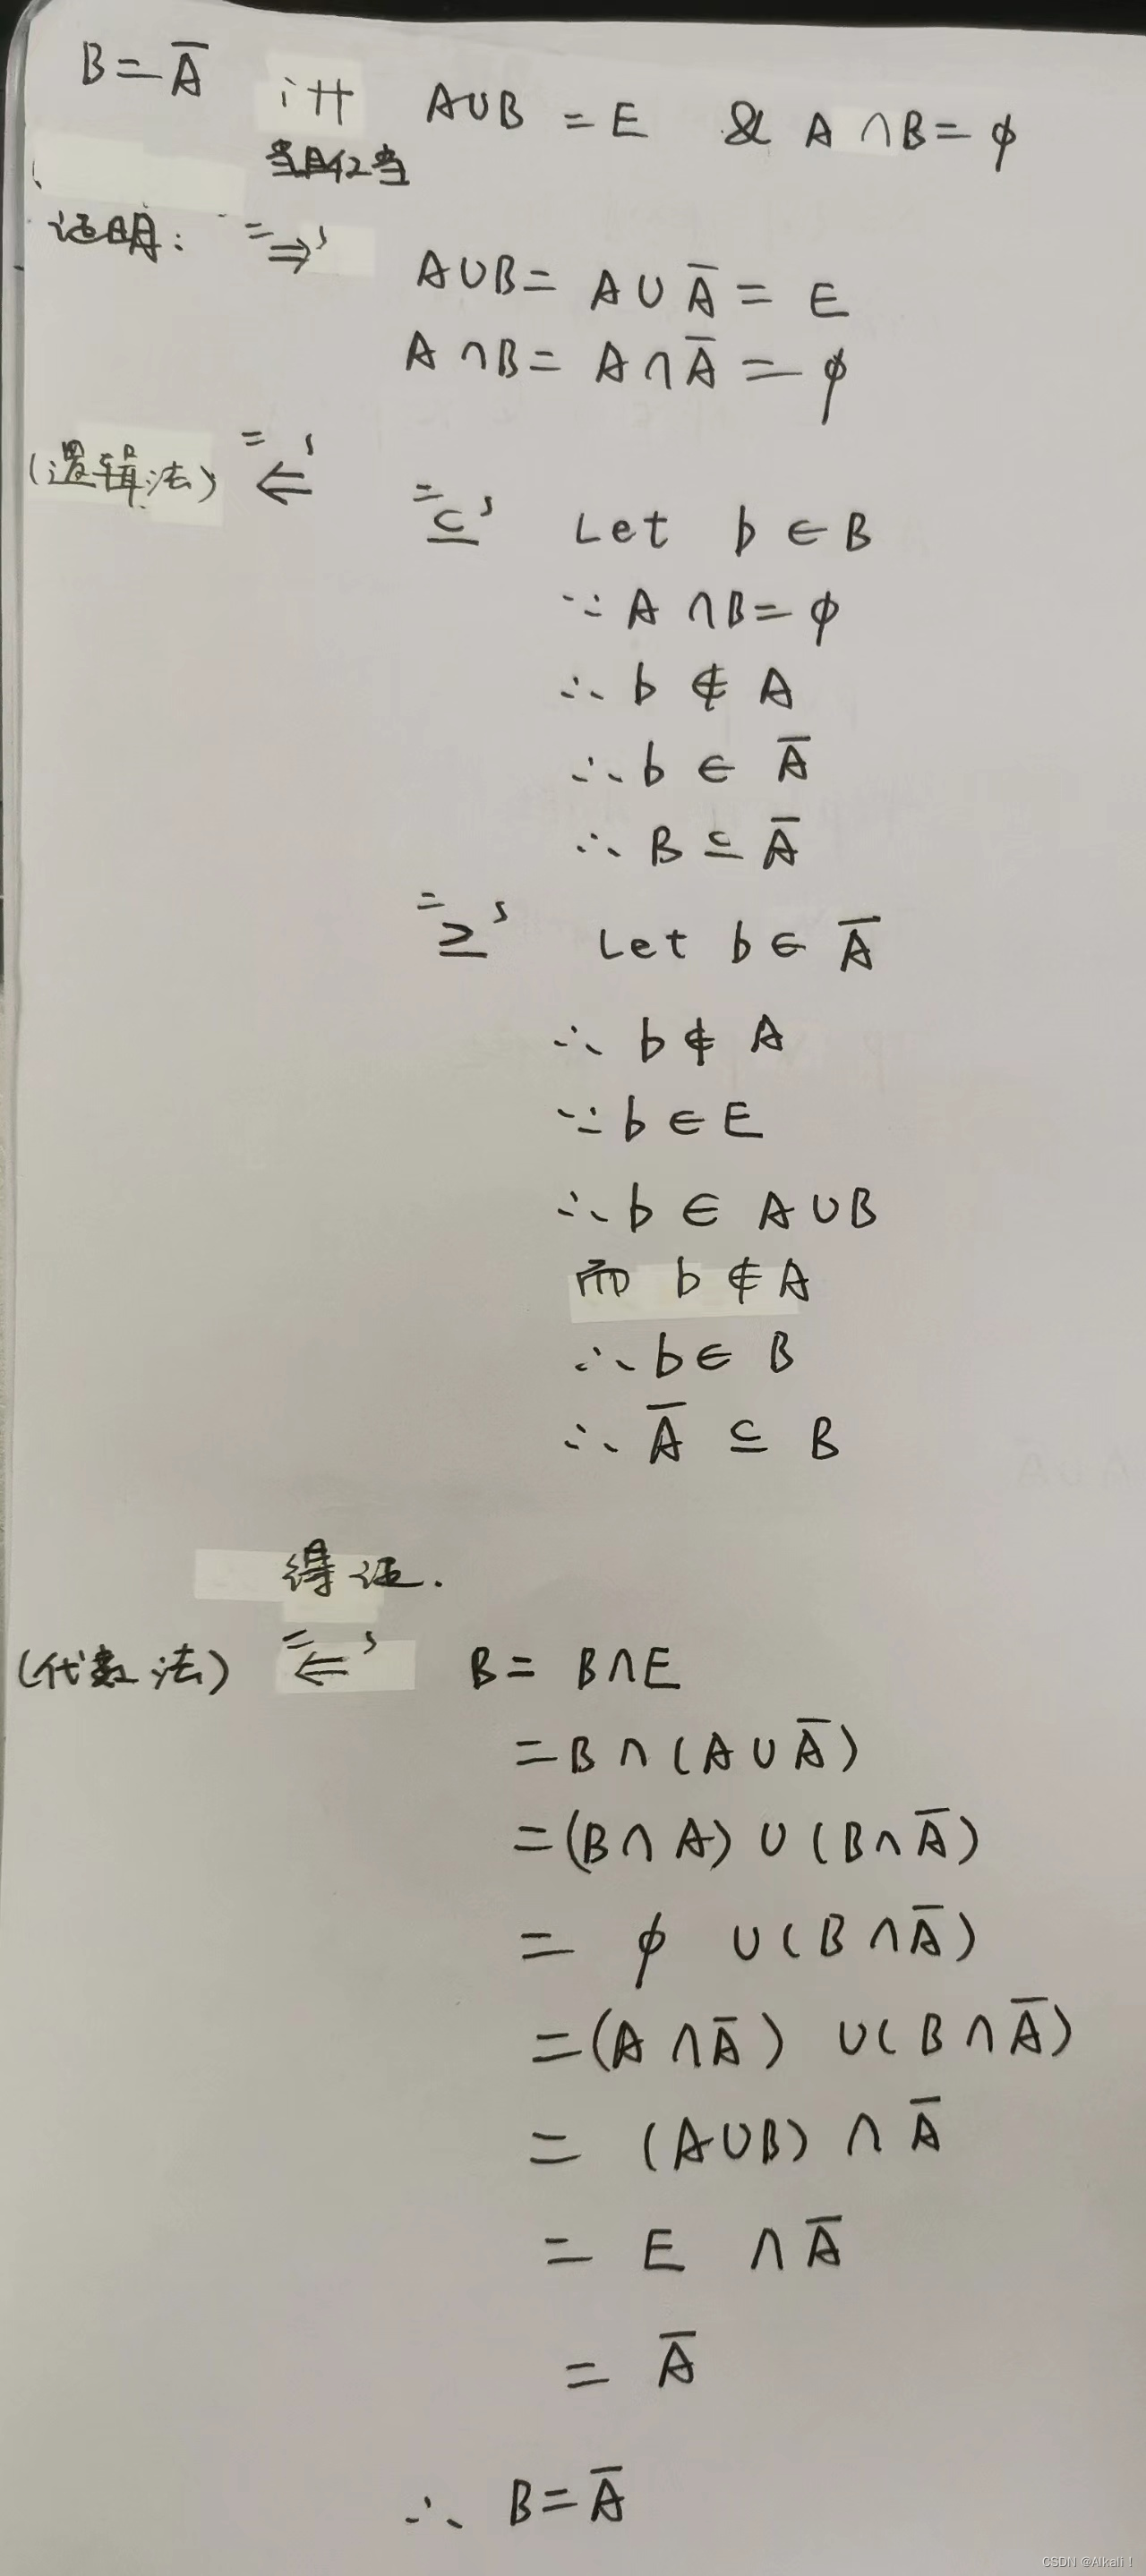 B = A̅ iff A∪B = E & A∩B = ϕ
当且仅当
证明: "⇒" A∪B = A∪A̅ = E
A∩B = A∩A̅ = ϕ
(逻辑法) "⇐" "⊆" Let b ∈ B
∵ A∩B = ϕ
∴ b ∉ A
∴ b ∈ A̅
∴ B ⊆ A̅
"⊇" Let b ∈ A̅
∴ b ∉ A
∵ b ∈ E
∴ b ∈ A∪B
而 b ∉ A
∴ b ∈ B
∴ A̅ ⊆ B
得证.
(代数法) "⇐" B = B∩E
= B∩(A∪A̅)
= (B∩A)∪(B∩A̅)
= ϕ ∪(B∩A̅)
= (A∩A̅) ∪(B∩A̅)
= (A∪B)∩A̅
= E ∩A̅
= A̅
∴ B = A̅
CSDN @Alkali！